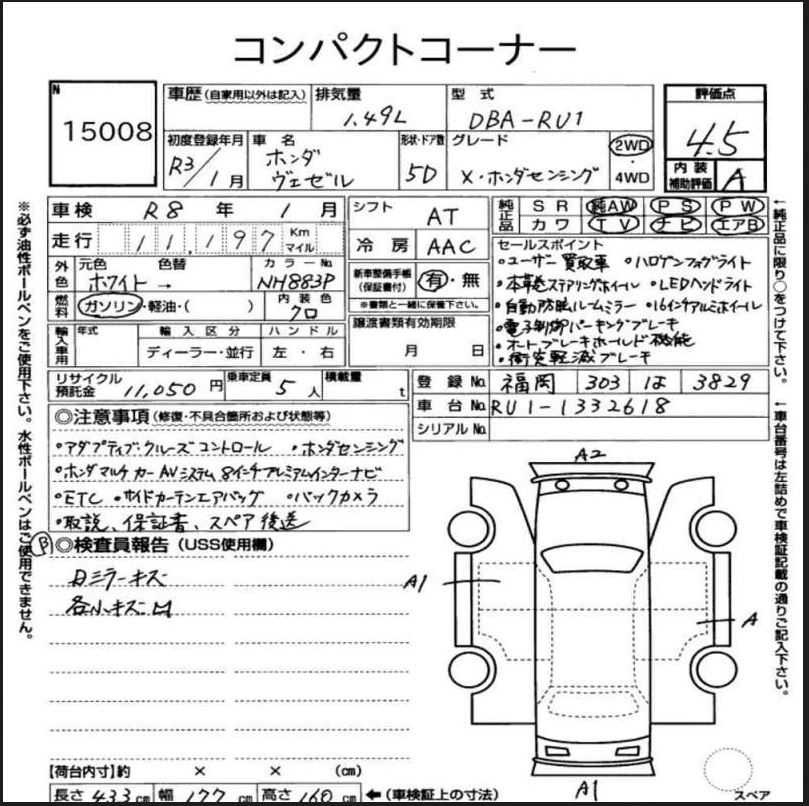 コンパクトコーナー
N
15008
車歴 (自家用以外は記入)
排気量
1.49L
型式
DBA-RU1
評価点
4.5
内装補助評価
A
初度登録年月
R3/1月
車名
ホンダ
ヴェゼル
形状・ドア数
5D
グレード
X・ホンダセンシング
2WD
・
4WD
車検 R8年 1月
走行 11,197 Km マイル
シフト AT
冷房 AAC
純正品
SR 純AW PS PW
カワ TV ナビ エアB
外色
元色 色替
ホワイト→
カラーNo.
NH883P
燃料
ガソリン・軽油・( )
内装色
クロ
新車整備手帳(保証書付) 有・無
※書類と一緒に保管下さい。
セールスポイント
・ユーザー買取車 ・ハロゲンフォグライト
・本革巻ステアリングホイール ・LEDヘッドライト
・自動防眩ルームミラー ・16インチアルミホイール
・電子制御パーキングブレーキ
・オートブレーキホールド機能
・衝突軽減ブレーキ
輸入車用
年式
輸入区分
ディーラー・並行
ハンドル
左・右
譲渡書類有効期限
月 日
リサイクル預託金 11,050円
乗車定員 5人
積載量 t
登録No. 福岡 303 は 3829
車台No. RU1-1332618
シリアルNo.
◎注意事項(修復・不具合箇所および状態等)
・アダプティブ・クルーズコントロール ・ホンダセンシング
・ホンダマルチカーAVシステム 8インチプレミアムインターナビ
・ETC ・サイドカーテンエアバッグ ・バックカメラ
・取説、保証書、スペア後送
β
◎検査員報告(USS使用欄)
日ミラーキズ
各小キズ凹
A2
A1
A
A1
スペア
【荷台内寸】約 × × (cm)
長さ 433cm 幅 177cm 高さ 160cm ←(車検証上の寸法)
※必ず油性ボールペンをご使用下さい。水性ボールペンはご使用できません。
←純正品に限り○をつけて下さい。
←車台番号は左詰めで車検証記載の通りご記入下さい。